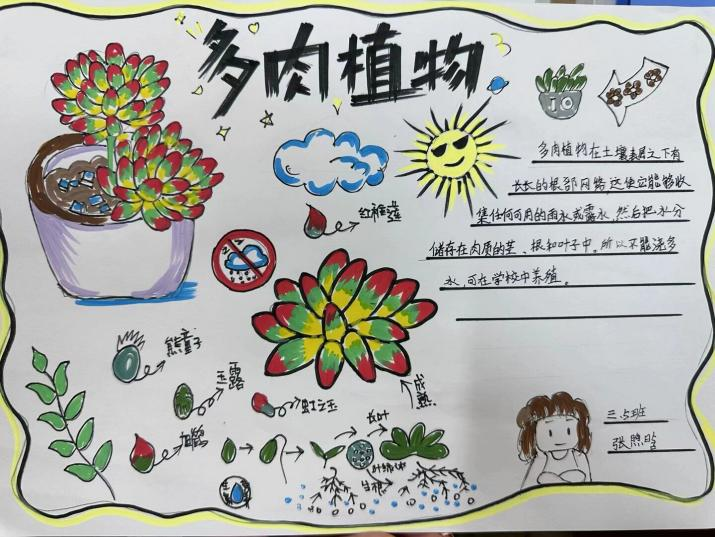 多肉植物
JO
多肉植物在土壤表层之下有
长长的根部网络,这使它能够收
集任何可用的雨水或露水,然后把水分
储存在肉质的茎、根和叶子中。所以不能浇多
水,可在学校中养殖。
红稚莲
熊童子
玉露
虹之玉
成熟
长叶
生根
三.5班